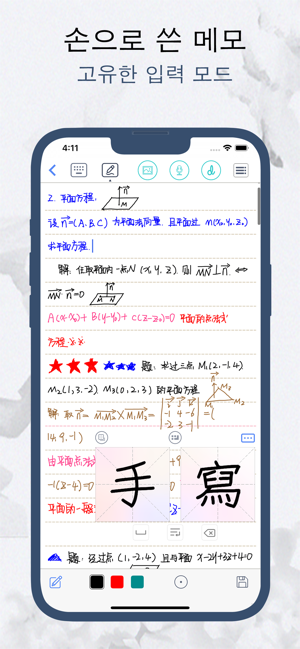 손으로 쓴 메모
고유한 입력 모드
4:11
2. 平面方程.
n
M
设 n=(A,B,C) 为平面法向量, 且平面过 M(x₀,y₀,z₀)
求平面方程.
解: 任取平面内一点N (x,y,z). 则 MN⊥n. ⇔
MN n=0
n
M N
A(x-x₀)+ B(y-y₀)+ C(z-z₀)=0 平面的点法式
方程.
题: 求过三点 M₁(2,-1,4)
M₂(1,3,-2), M₃(0,2,3) 的平面方程
解 取 n= M₁M₂×M₁M₃=
-1 4 -6
-2 3 -1
= (
M₃
M₂
14, 9, -1)
由平面点法
+9
-1(z-4)=0
平面的一般
手 寫
题: 经过点 (1,-2,4) 且与平面 x-2y+3z+4=0